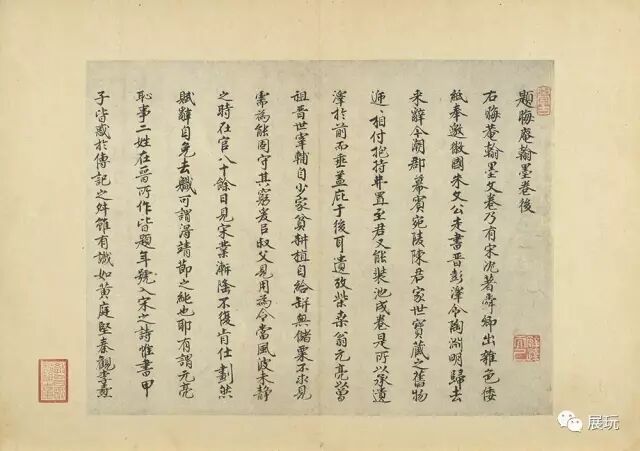 題晦庵翰墨卷後
右晦菴翰墨文卷乃有宋沈著舜卿出雜色倭
紙奉邀徽國朱文公走書晉彭澤令陶淵明歸去
来辭今潮郡幕賓宛陵陳君家世寶藏之舊物
相付抱持井置至君又能裝池成卷是所以承遺
澤於前而垂蓋庇于後耳遺攷柴桑翁元亮以曾
祖晉世宰輔自少家貧耕植自給缾無儲粟不求見
需為能固守其窮爰以叔父見用為令當風波未靜
之時在官八十餘日見宋業漸隆不復肯仕劃然
賦辭自免去職可謂得靖節之純也耶有謂元亮
恥事二姓在晉所作皆題年號入宋之詩惟書甲
子皆惑於傳記之舛雖有識如黃庭堅秦觀李燾
展玩